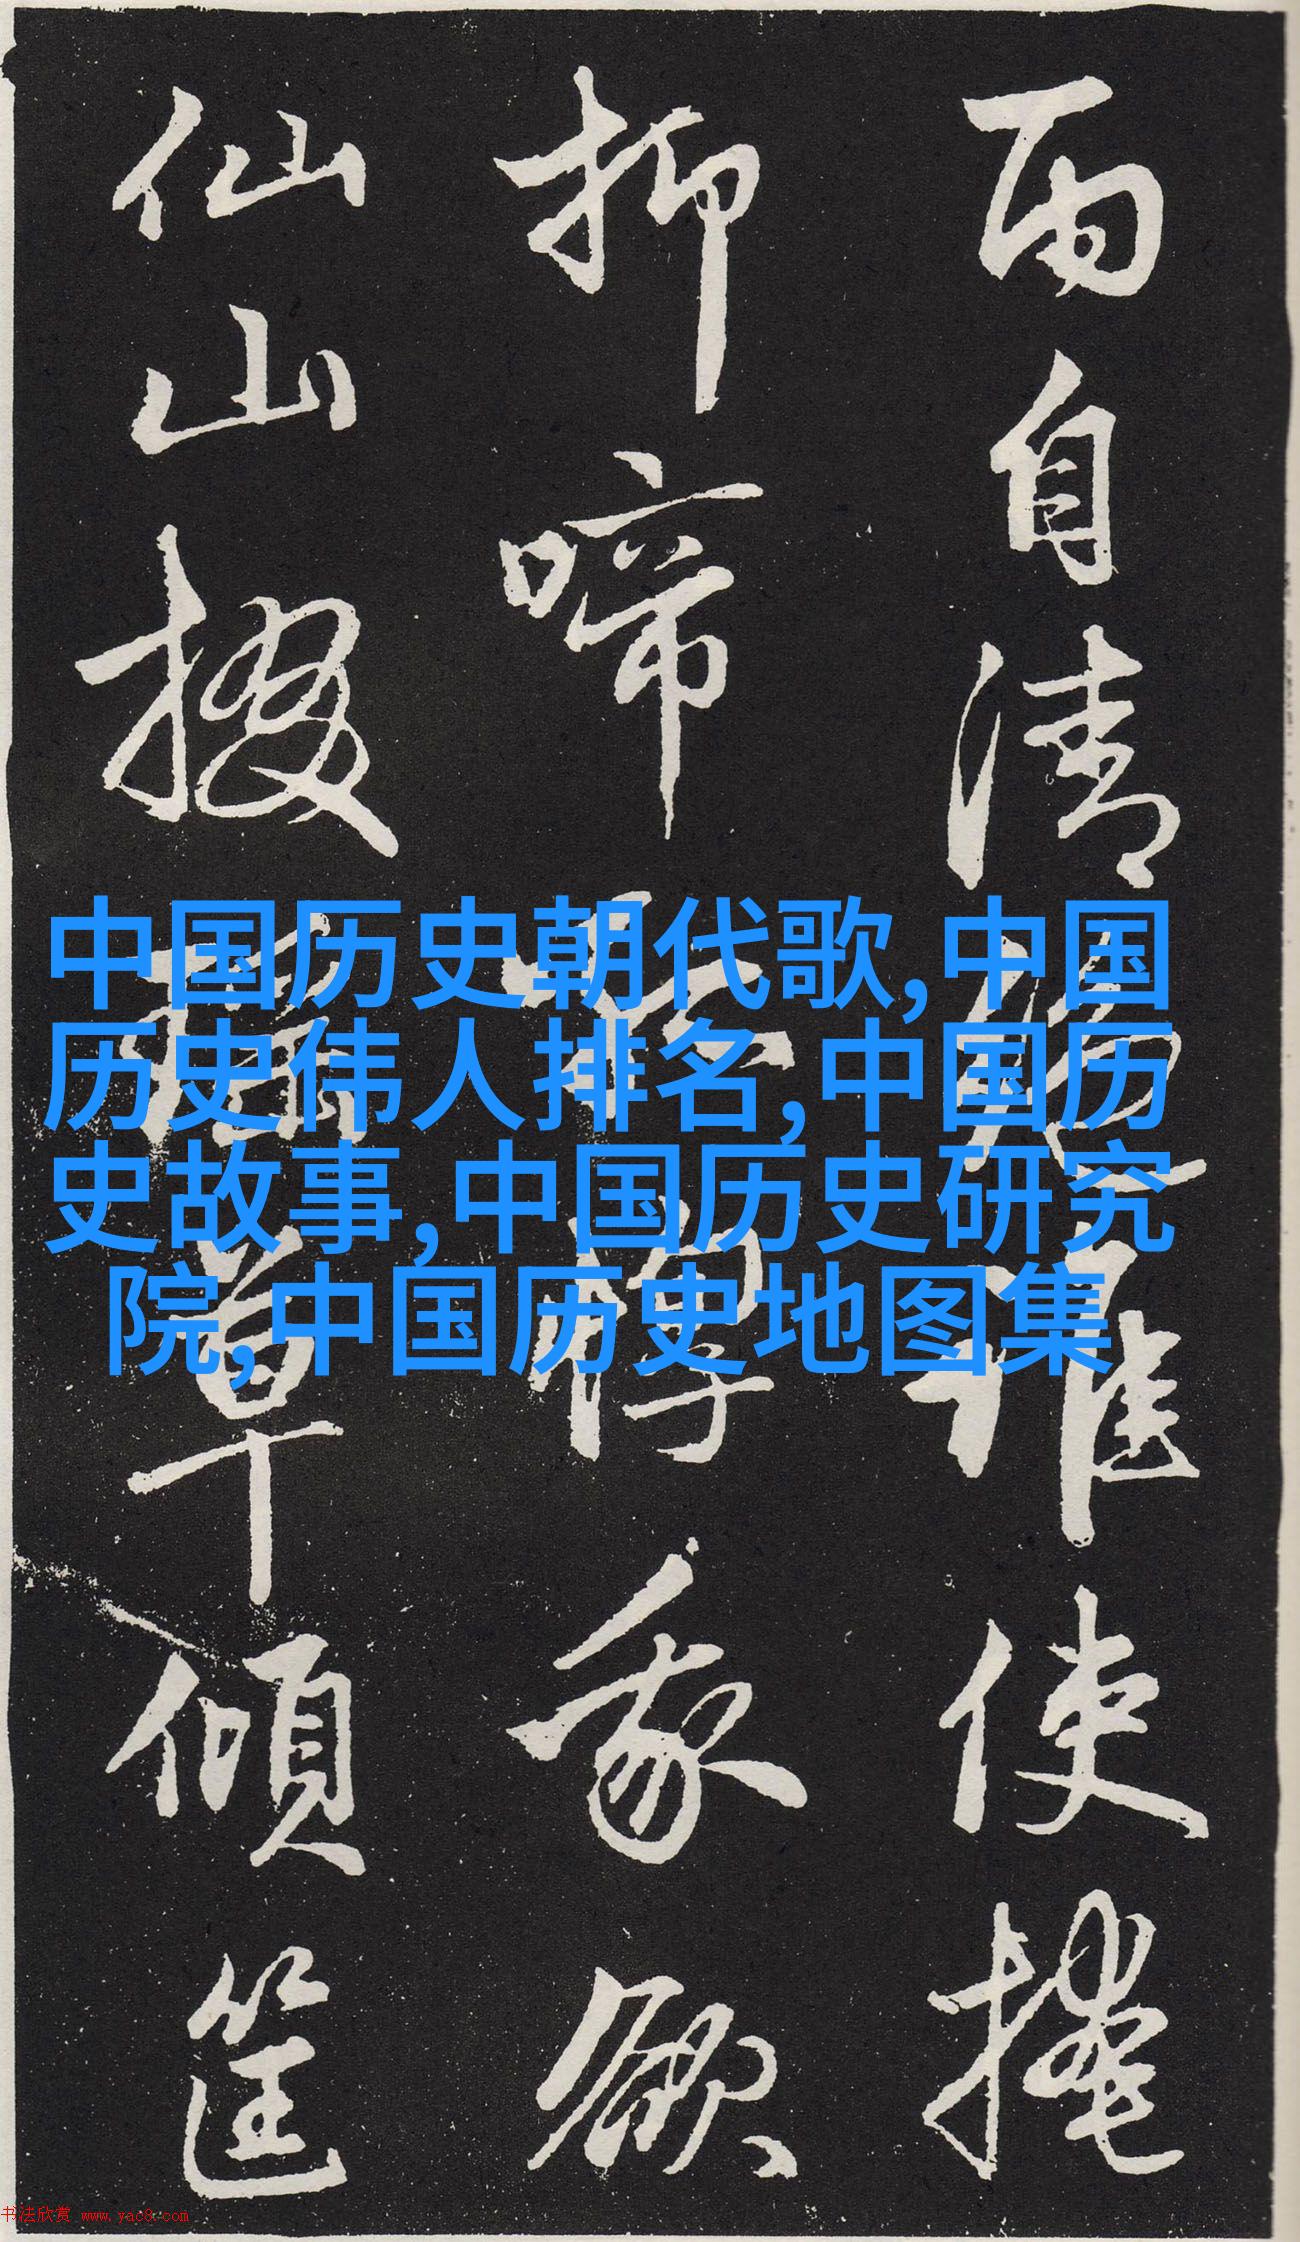 而自清 誰使擁
抑啼 博我欲
仙山掇瑤草傾筐
中国历史朝代歌,中国
历史伟人排名,中国历
史故事,中国历史研究
院,中国历史地图集
书法欣赏 www.yac8.com